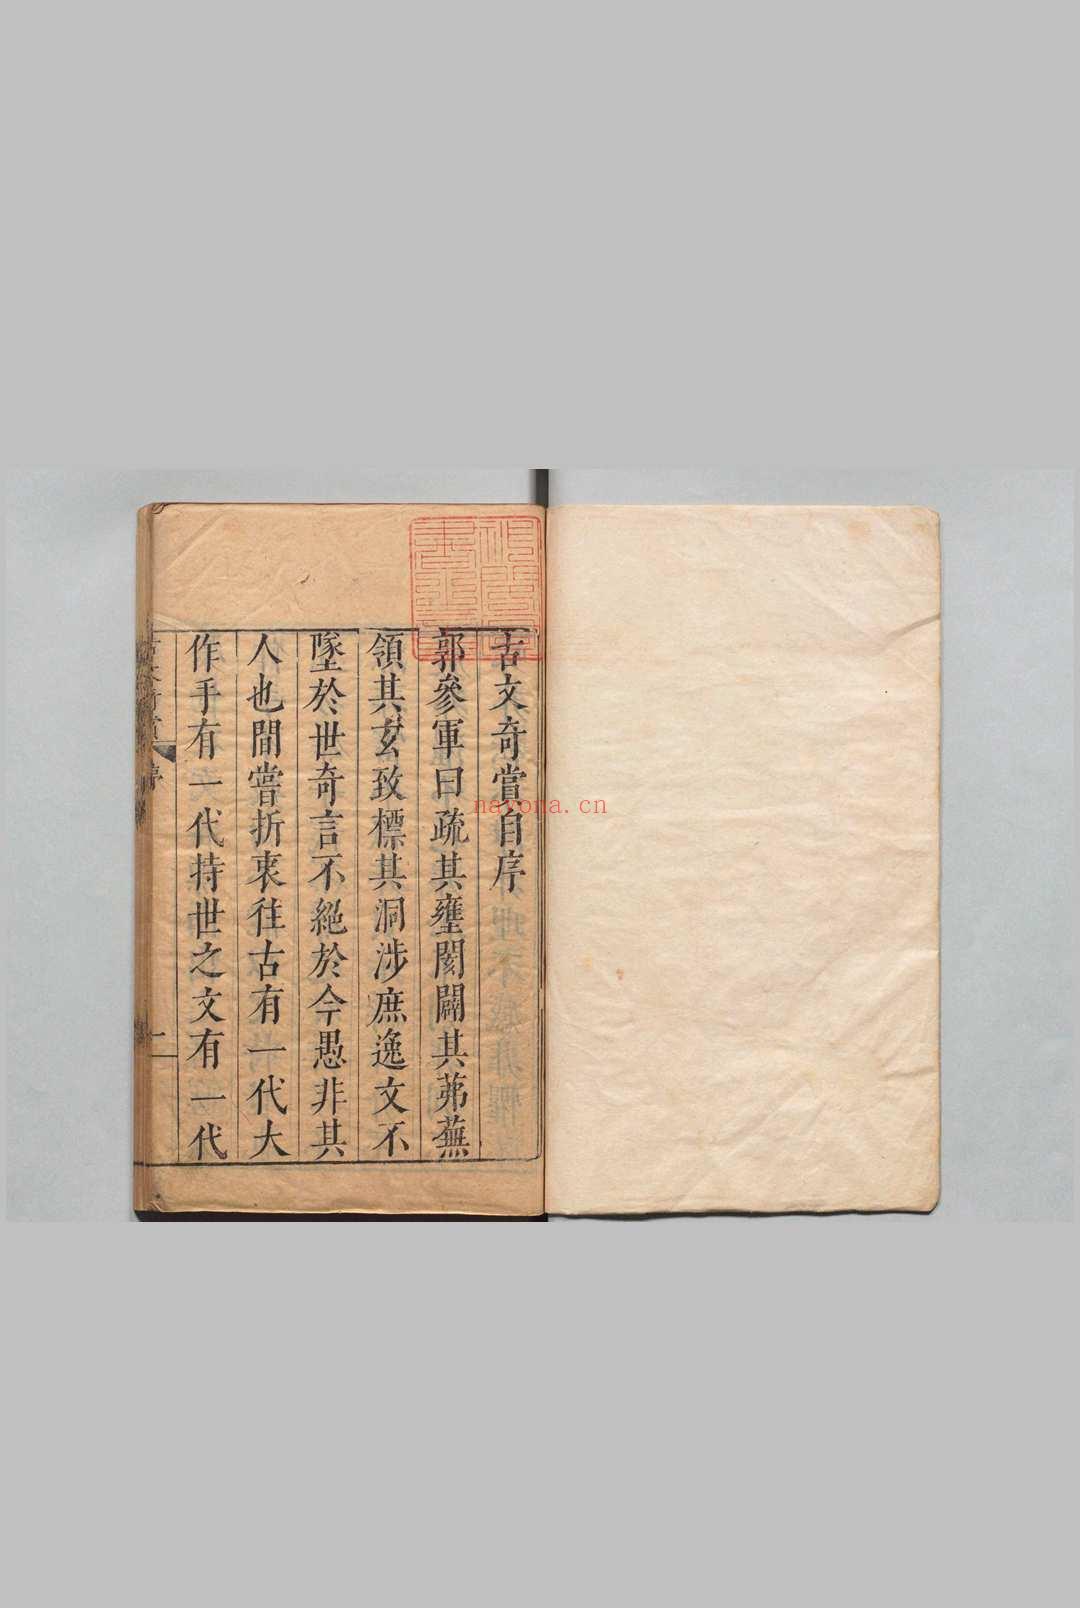 古文奇賞自序
郭參軍曰疏其壅閡闢其茀蕪
領其玄致標其洞涉庶逸文不
墜於世奇言不絕於今愚非其
人也間嘗折衷往古有一代大
作手有一代持世之文有一代
序
一
nayona.cn